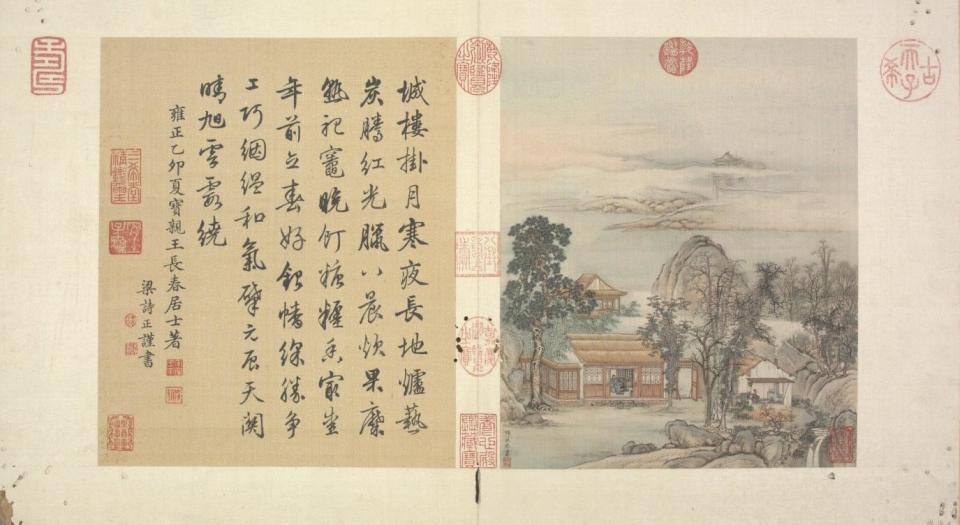 城樓掛月寒夜長地爐爇
炭騰紅光臘八晨炊果糜
熟祀竈晚飣香
年前立春好銀幡綵勝爭
工巧絪縕和氣肇元辰天闕
晴旭雲霞繞
雍正乙卯夏寶親王長春居士著
梁詩正謹書
古希天子